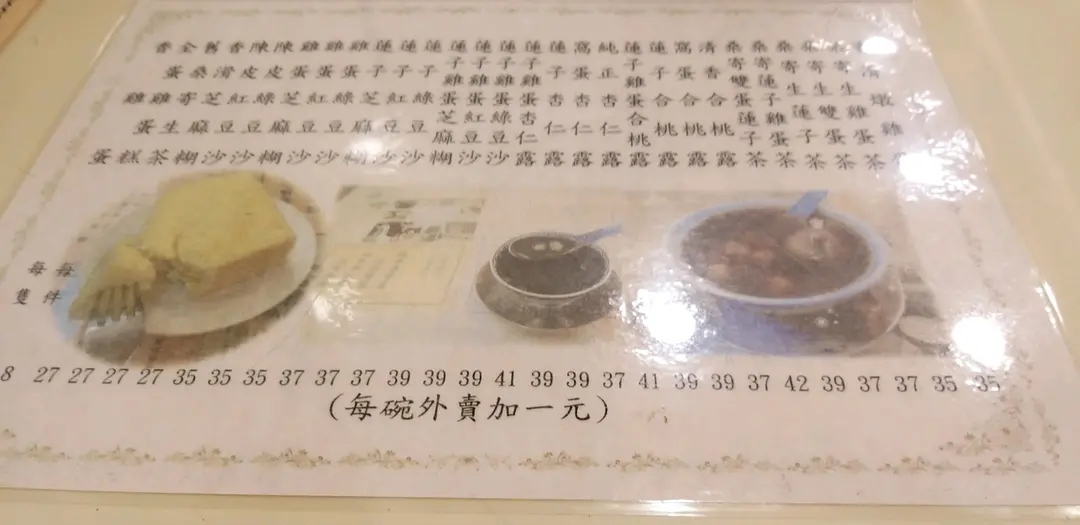 桑寄生雞蛋茶
桑寄生雙蛋茶
桑寄生蓮子茶
桑寄蓮子雞蛋茶
桑寄雙蛋蓮子茶
清香合桃露
窩蛋合桃露
蓮子合桃露
蓮子雞蛋合桃露
純正杏仁露
窩蛋杏仁露
蓮子杏仁露
蓮子雞蛋杏仁露
蓮子雞蛋綠豆沙
蓮子雞蛋紅豆沙
蓮子雞蛋芝麻糊
蓮子綠豆沙
蓮子紅豆沙
蓮子芝麻糊
雞蛋綠豆沙
雞蛋紅豆沙
雞蛋芝麻糊
陳皮綠豆沙
陳皮紅豆沙
香滑芝麻糊
舊桑寄生茶
全蛋雞蛋糕
香雞蛋
每件
每隻
8 27 27 27 27 35 35 35 37 37 37 39 39 39 41 39 39 37 41 39 39 37 42 39 37 37 35 35
(每碗外賣加一元)